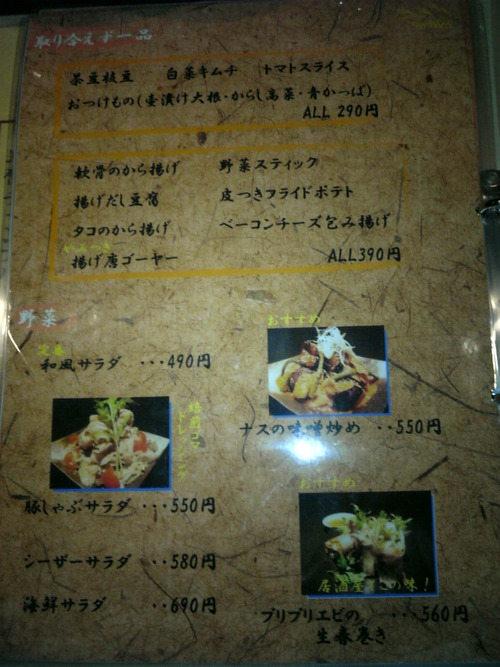 取り合えず一品
茶豆枝豆　白菜キムチ　トマトスライス
おつけもの(壺漬け大根・からし高菜・青かっぱ)
ALL 290円
軟骨のから揚げ　野菜スティック
揚げだし豆腐　皮つきフライドポテト
タコのから揚げ　ベーコンチーズ包み揚げ
揚げ唐ゴーヤー　ALL390円
野菜
定番
和風サラダ　・・・490円
おすすめ
ナスの味噌炒め　・・550円
豚しゃぶサラダ　・・・550円
シーザーサラダ　・・・580円
海鮮サラダ　・・690円
おすすめ
の味！
プリプリエビの　・・・560円
生春巻き